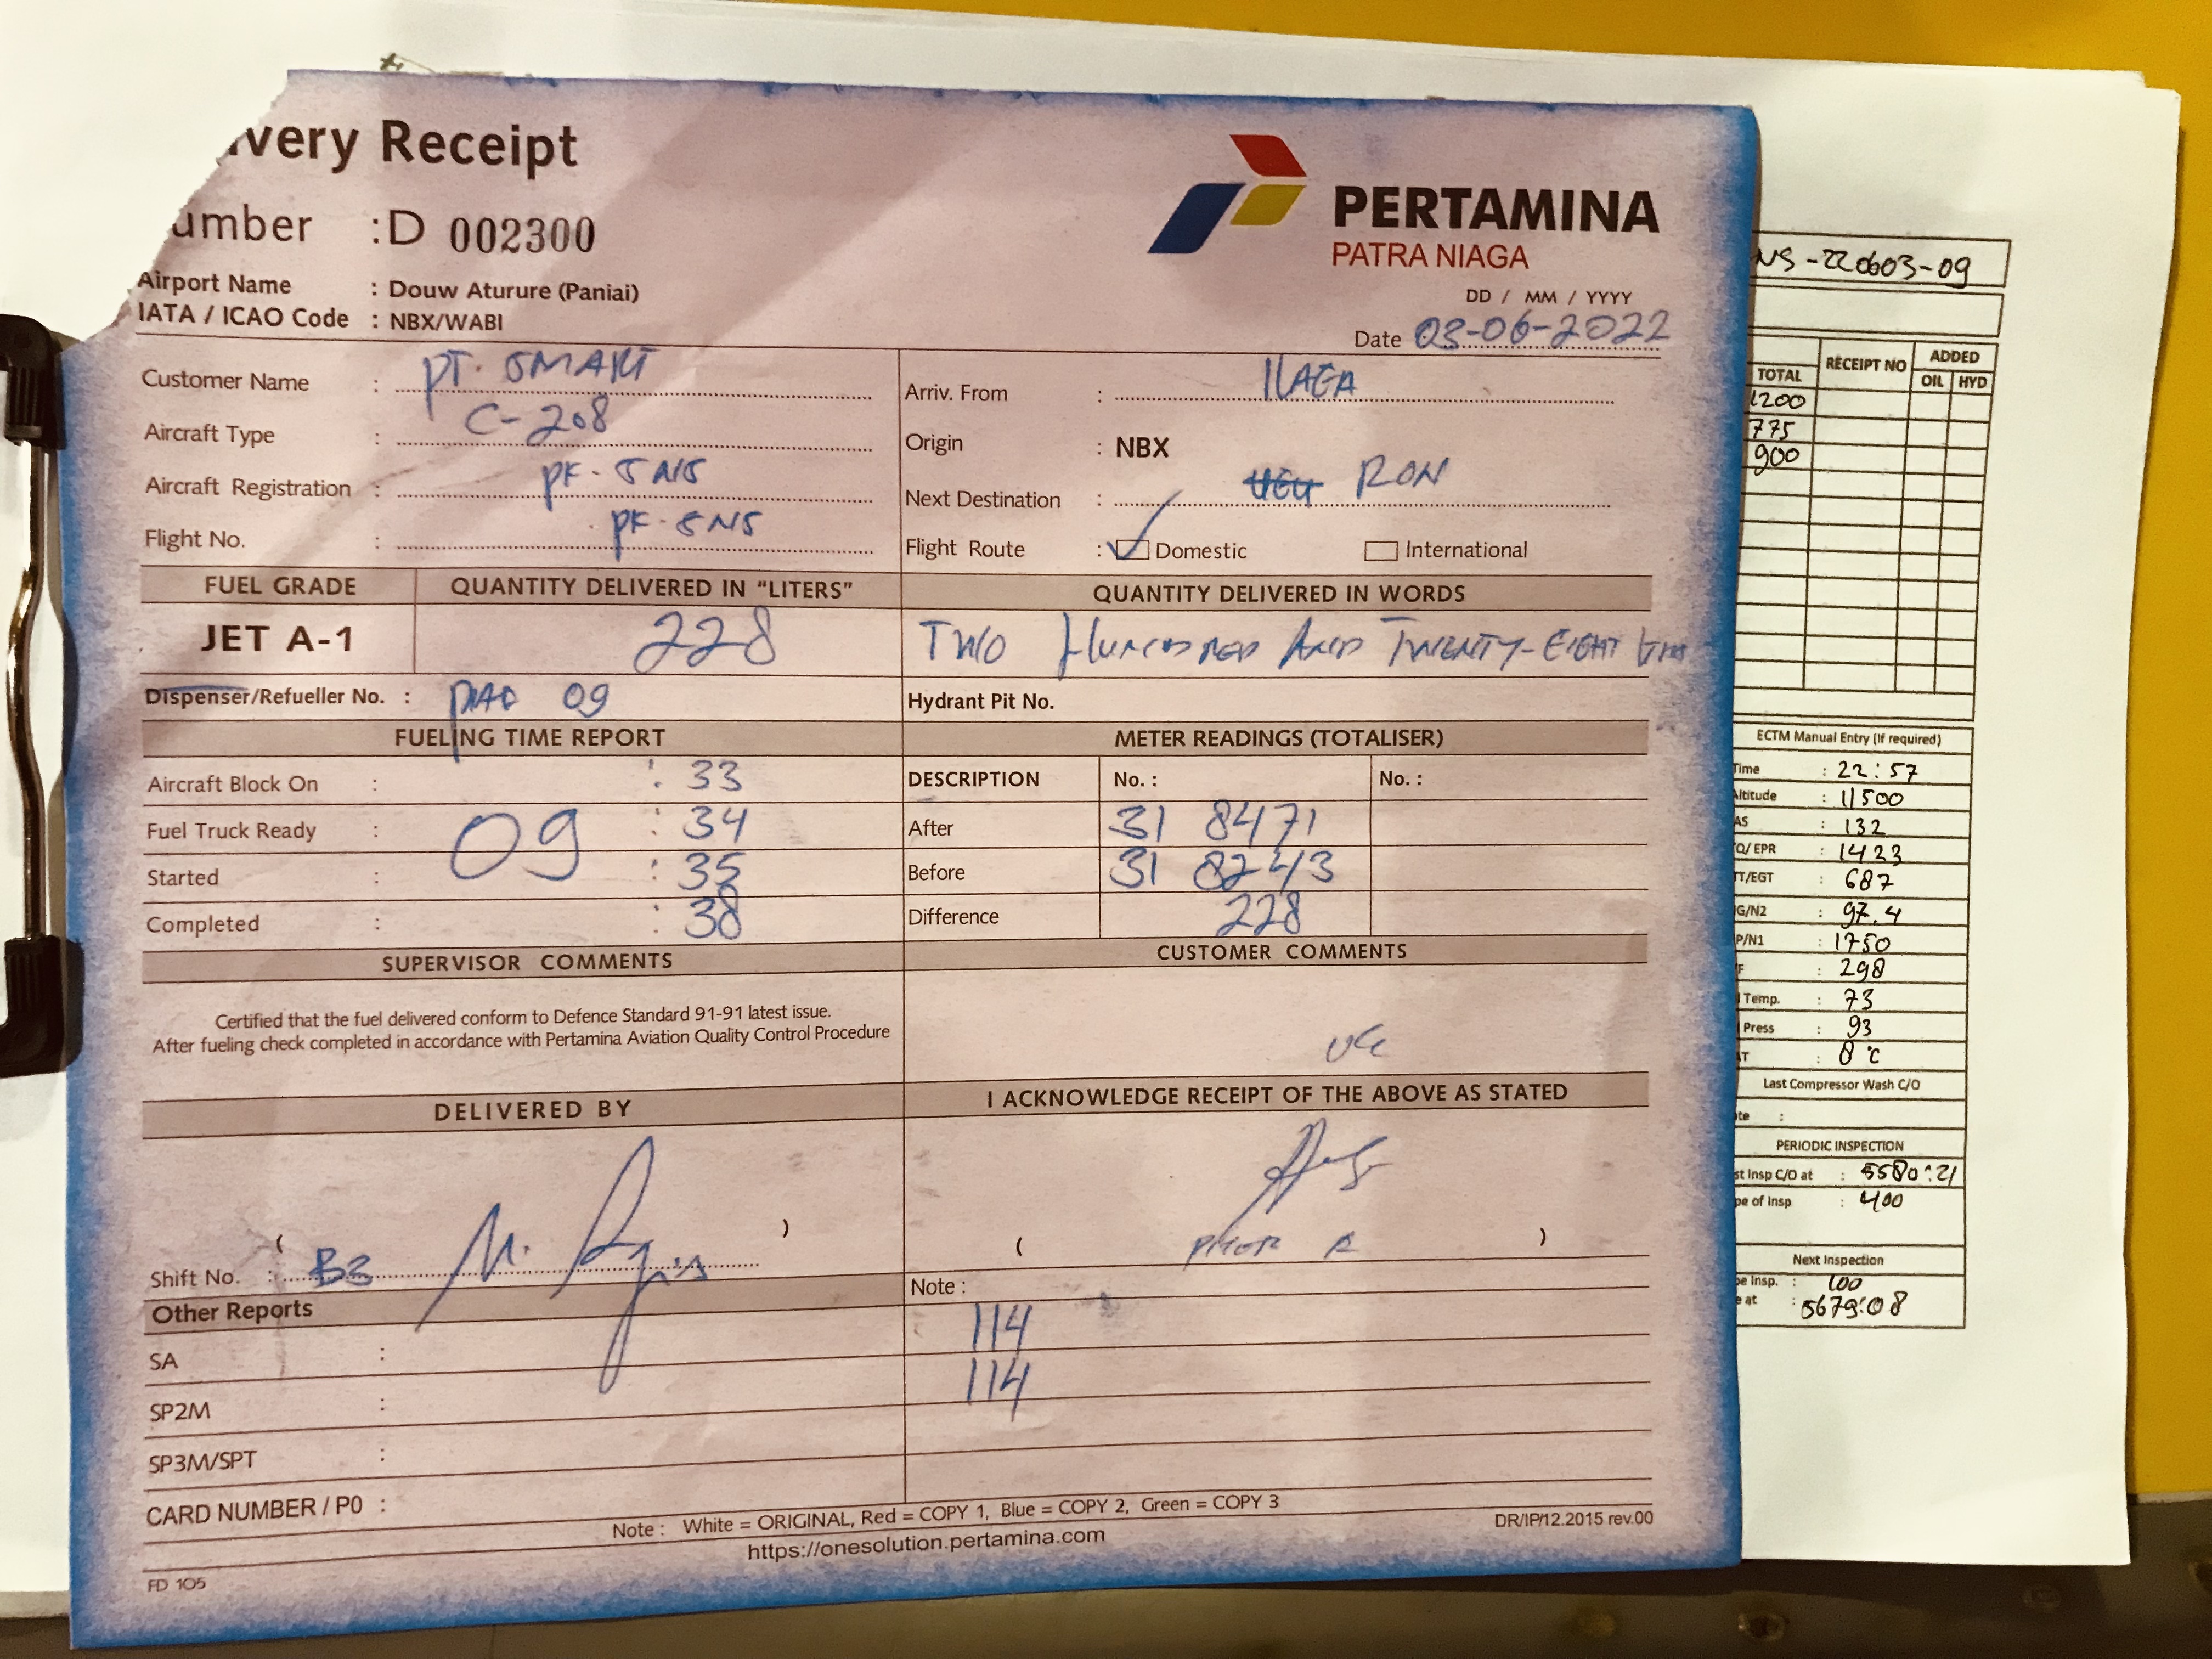 very Receipt
umber : D 002300
PERTAMINA
PATRA NIAGA
Airport Name : Douw Aturure (Paniai)
IATA / ICAO Code : NBX/WABI
DD / MM / YYYY
Date 03-06-2022
Customer Name : PT. SMART
Aircraft Type : C-208
Aircraft Registration : PK-SNS
Flight No. : PK-SNS
Arriv. From : ILAGA
Origin : NBX
Next Destination : RON
Flight Route : Domestic International
FUEL GRADE QUANTITY DELIVERED IN “LITERS” QUANTITY DELIVERED IN WORDS
JET A-1 228 TWO HUNDRED AND TWENTY-EIGHT
Dispenser/Refueller No. : 09 Hydrant Pit No.
FUELING TIME REPORT METER READINGS (TOTALISER)
Aircraft Block On : : 33
Fuel Truck Ready : 09 : 34
Started : : 35
Completed : : 38
DESCRIPTION No. : No. :
After 31 8471
Before 31 8243
Difference 228
SUPERVISOR COMMENTS CUSTOMER COMMENTS
Certified that the fuel delivered conform to Defence Standard 91-91 latest issue.
After fueling check completed in accordance with Pertamina Aviation Quality Control Procedure
DELIVERED BY I ACKNOWLEDGE RECEIPT OF THE ABOVE AS STATED
( ) ( )
Shift No. : B3
Note :
Other Reports 114
SA : 114
SP2M :
SP3M/SPT :
CARD NUMBER / P0 :
Note : White = ORIGINAL, Red = COPY 1, Blue = COPY 2, Green = COPY 3
DR/IP/12.2015 rev.00
https://onesolution.pertamina.com
FD 105
NS-220603-09
TOTAL RECEIPT NO ADDED
OIL HYD
1200
775
900
ECTM Manual Entry (If required)
Time : 22:57
Altitude : 11500
AS : 132
Q/ EPR : 1423
TT/EGT : 687
G/N2 : 97.4
P/N1 : 1750
F : 298
l Temp. : 73
Press : 93
AT : 8°C
Last Compressor Wash C/O
te :
PERIODIC INSPECTION
st Insp C/O at : 5580:21
pe of Insp : 400
Next Inspection
pe Insp. : 100
e at : 5679:08